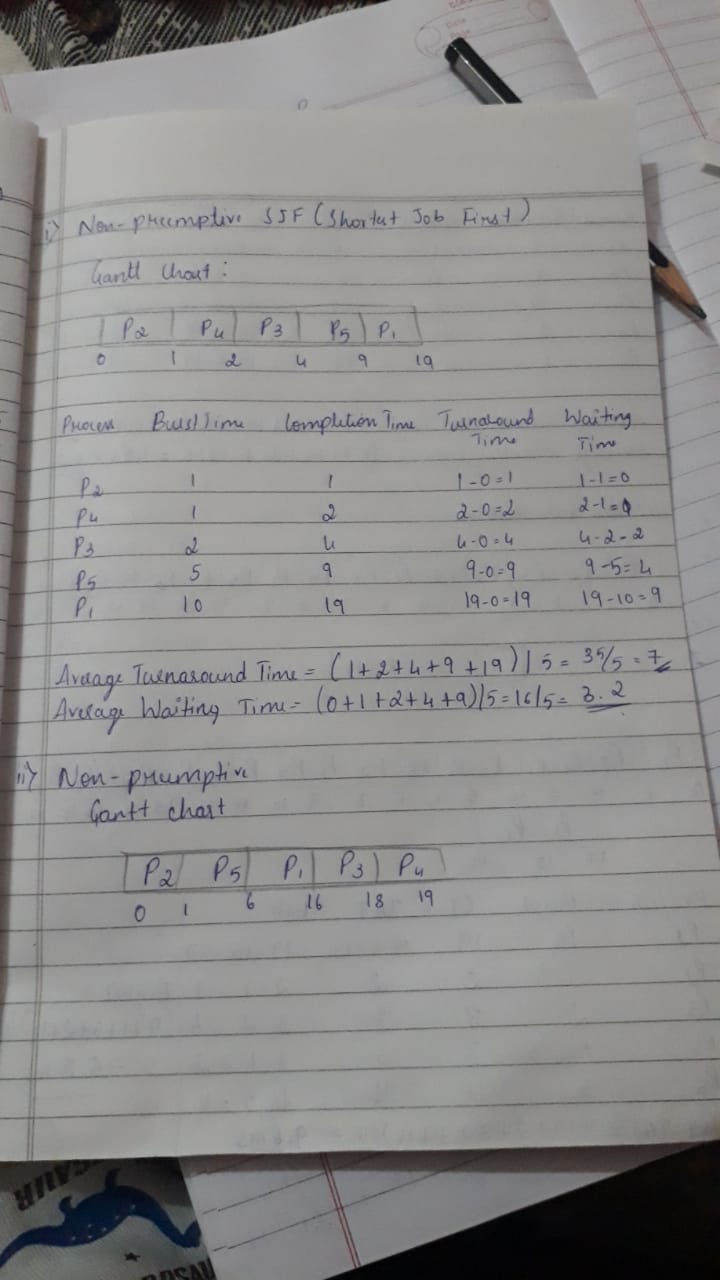 i) Non-preemptive SJF (Shortest Job First)
Gantt Chart :
P2 P4 P3 P5 P1
0 1 2 4 9 19
Process Burst Time Completion Time Turnaround Time Waiting Time
P2 1 1 1-0=1 1-1=0
P4 1 2 2-0=2 2-1=1
P3 2 4 4-0=4 4-2=2
P5 5 9 9-0=9 9-5=4
P1 10 19 19-0=19 19-10=9
Average Turnaround Time = (1+2+4+9+19)/5 = 35/5 = 7
Average Waiting Time = (0+1+2+4+9)/5=16/5= 3.2
ii) Non-preemptive
Gantt chart
P2 P5 P1 P3 P4
0 1 6 16 18 19